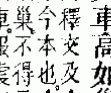 車高如
釋文及
今本也
巢不得